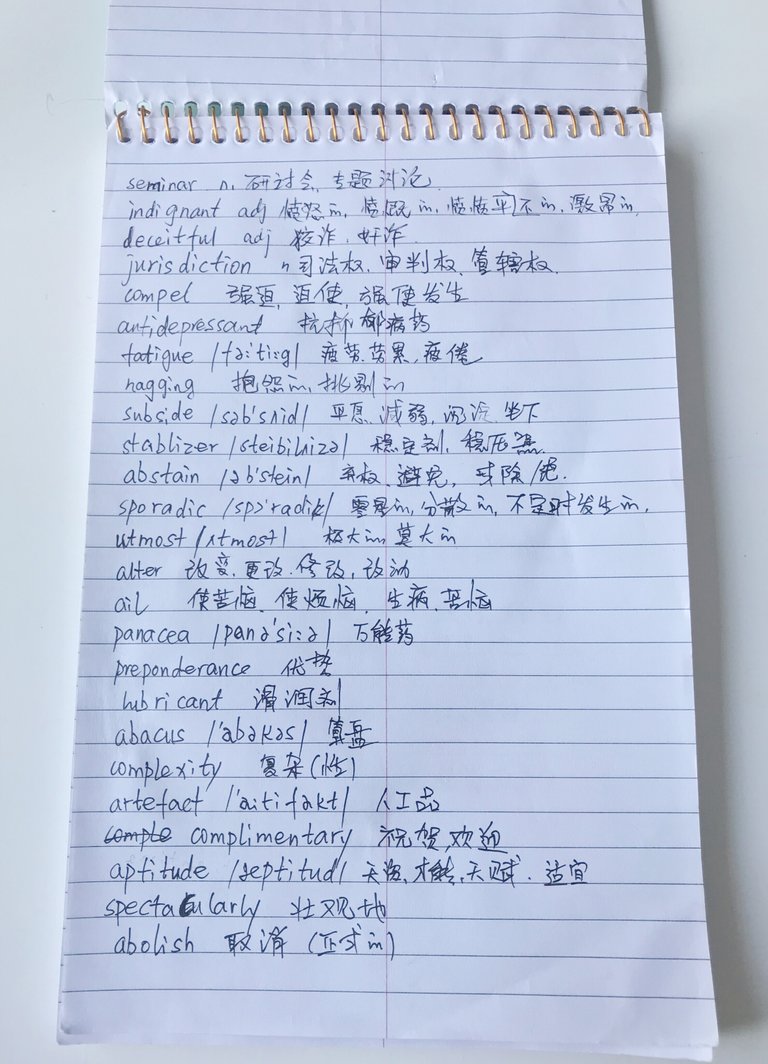 seminar n. 研讨会, 专题讨论
indignant adj 愤怒的, 愤慨的, 愤愤不平的, 激昂的,
deceitful adj 狡诈, 奸诈.
jurisdiction n 司法权, 审判权, 管辖权.
compel 强迫, 迫使, 强使发生
antidepressant 抗抑郁病药
fatigue /fə:ti:g/ 疲劳, 劳累, 疲倦
nagging 抱怨的, 挑剔的
subside /səb'sʌid/ 平息, 减弱, 沉淀 坐下
stablizer /steibilʌizə/ 稳定剂, 稳压器.
abstain /əb'stein/ 弃权, 避免, 戒除/绝.
sporadic /spə'radik/ 零星的, 分散的, 不定时发生的,
utmost /ʌtmost/ 极大的, 莫大的
alter 改变, 更改, 修改, 改动
ail 使苦恼, 使烦恼, 生病, 苦恼
panacea /panə'si:ə/ 万能药
preponderance 优势
lubricant 滑润剂
abacus /'abəkəs/ 算盘
complexity 复杂(性)
artefact /'a:tifakt/ 人工品
comple complimentary 祝贺, 欢迎
aptitude /æptitud/ 天资, 才能, 天赋. 适宜
spectacularly 壮观地
abolish 取消 (正式的)